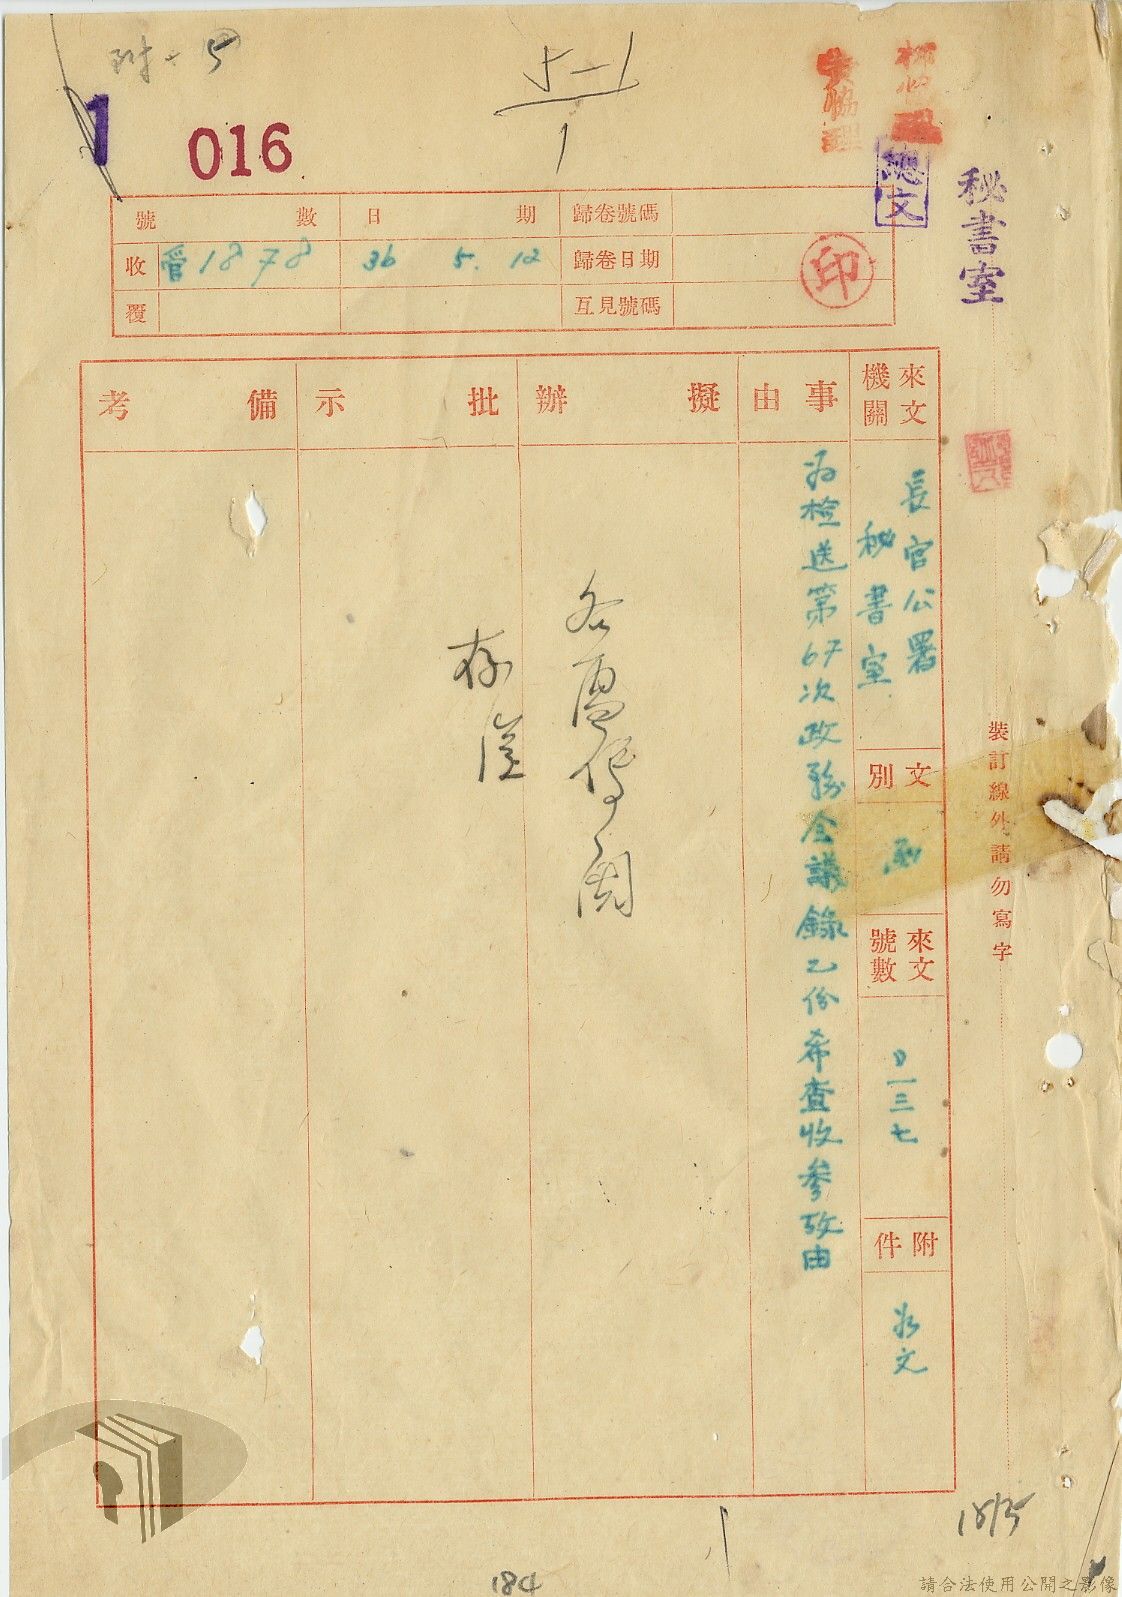 附-5
5-1
1
1
016
協理
總文
秘書室
號數 日期 歸卷號碼
收 管1878 36 5. 12 歸卷日期
覆 互見號碼
印
來文機關
長官公署
秘書室
文別
函
來文號數
一三七
附件
如文
事由
為檢送第67次政務會議錄乙份希查收參攷由
擬辦
各區傳閱
批示
存
備考
裝訂線外請勿寫字
18/5
184
請合法使用公開之影像